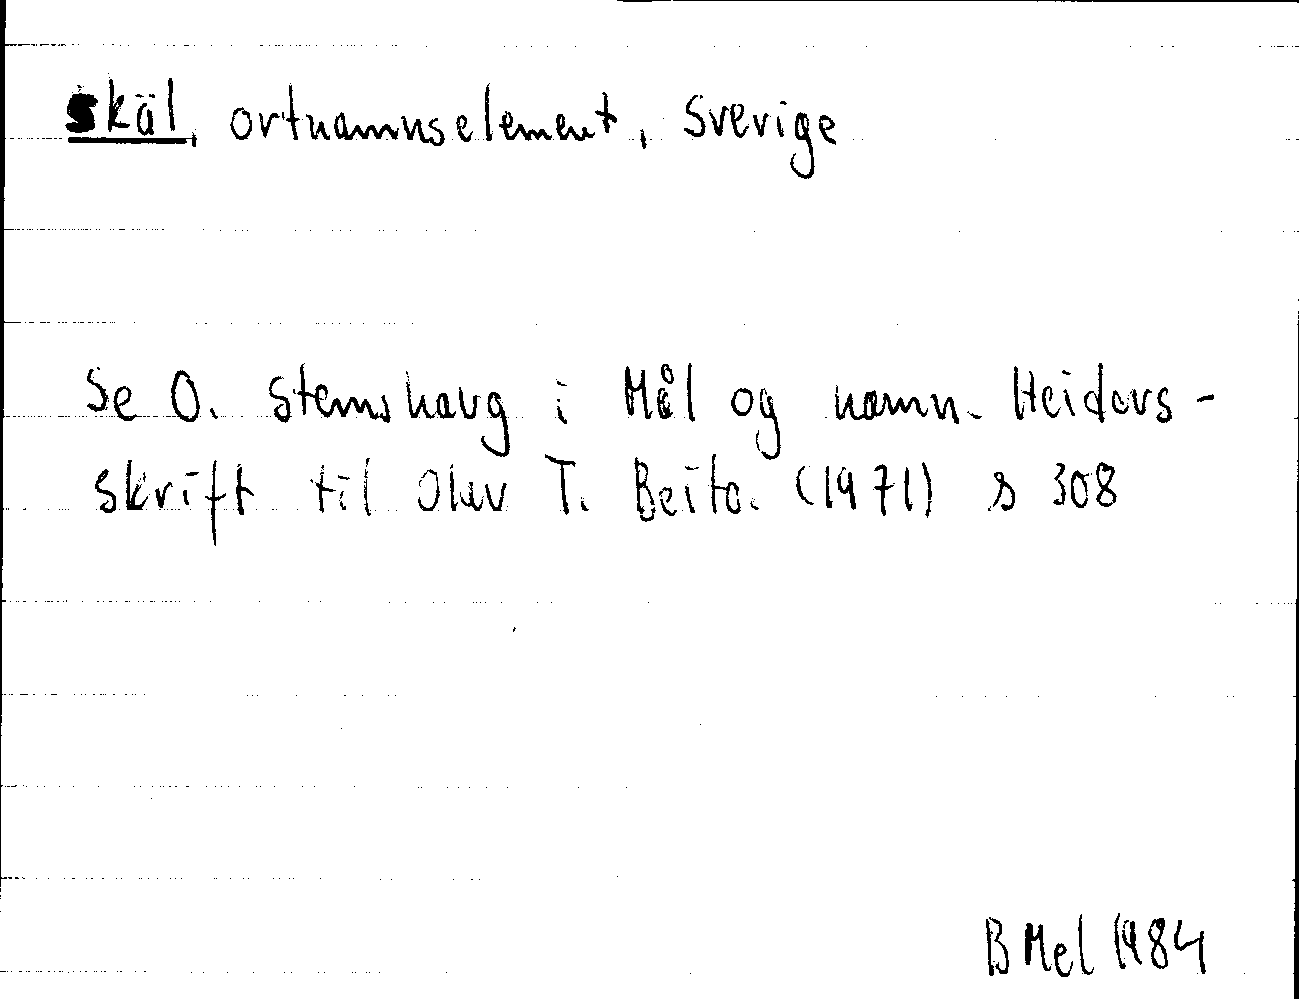 skäl, ortnamnselement, Sverige
Se O. Stemshaug i Mål og namn. Heiders-
skrift til Olav T. Beito. (1971) s 308
B Mel 1984